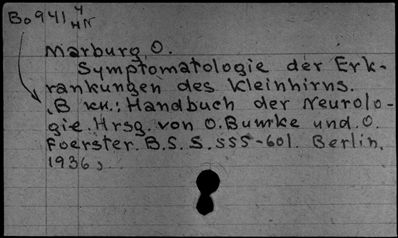 Bo941 4
HN
Marburg, O.
Symptomatologie der Erk-
rankungen des Kleinhirns.
B кн.: Handbuch der Neurolo-
gie. Hrsg. von O. Bumke und. O.
Foerster. B.5. S. 555-601. Berlin,
1936,